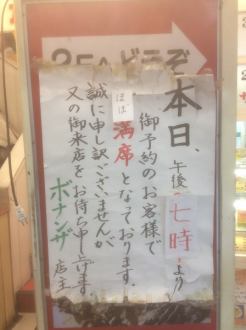 2Fへどうぞ
本日、午後七時より
御予約のお客様で
ほぼ満席となっております。
誠に申し訳ございませんが
又の御来店をお待ち申し上げます。
ボナンザ
店主